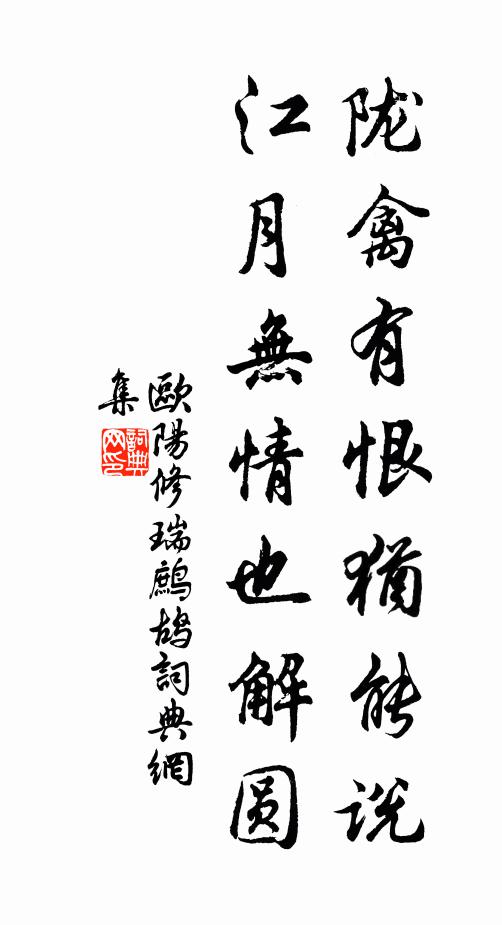 陇禽有恨猶能説
江月無情也解圆
歐陽修瑞鷓鴣詞典網
集
詞典
网印